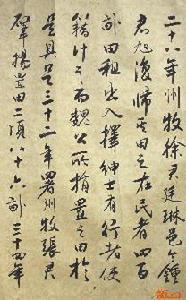 二十八年州牧徐君廷琳邑人鍾
君旭復歸其田之在民者四百
畝田租出入擇紳士有行者使
籍計之而魏公所捐置之田於
是具足三十二年署州牧張君
肇揚置田二頃八十六畝三十四年